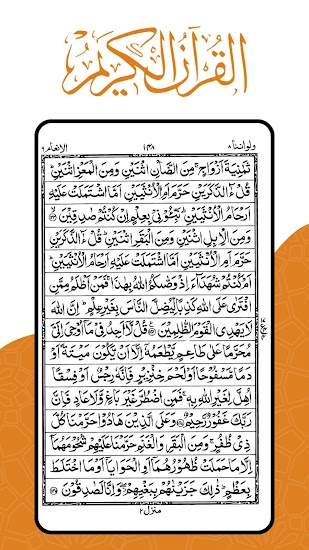 القرآن الكريم
ولواننا ٨
١٤٨
الانعام ٦
ثَمٰنِيَةَ اَزْوَاجٍ ۚ مِنَ الضَّاْنِ اثْنَيْنِ وَمِنَ الْمَعْزِ اثْنَيْنِ ؕ
قُلْ ءٰٓالذَّكَرَيْنِ حَرَّمَ اَمِ الْاُنْثَيَيْنِ اَمَّا اشْتَمَلَتْ عَلَيْهِ
اَرْحَامُ الْاُنْثَيَيْنِ ؕ نَبِّـُٔوْنِيْ بِعِلْمٍ اِنْ كُنْتُمْ صٰدِقِيْنَ
وَمِنَ الْاِبِلِ اثْنَيْنِ وَمِنَ الْبَقَرِ اثْنَيْنِ ؕ قُلْ ءٰٓالذَّكَرَيْنِ
حَرَّمَ اَمِ الْاُنْثَيَيْنِ اَمَّا اشْتَمَلَتْ عَلَيْهِ اَرْحَامُ الْاُنْثَيَيْنِ ؕ
اَمْ كُنْتُمْ شُهَدَآءَ اِذْ وَصّٰىكُمُ اللّٰهُ بِهٰذَا ۚ فَمَنْ اَظْلَمُ مِمَّنِ
افْتَرٰى عَلَى اللّٰهِ كَذِبًا لِّيُضِلَّ النَّاسَ بِغَيْرِ عِلْمٍ ؕ اِنَّ اللّٰهَ
لَا يَهْدِى الْقَوْمَ الظّٰلِمِيْنَ قُلْ لَّآ اَجِدُ فِيْ مَآ اُوْحِيَ اِلَيَّ
مُحَرَّمًا عَلٰى طَاعِمٍ يَّطْعَمُهٗٓ اِلَّآ اَنْ يَّكُوْنَ مَيْتَةً اَوْ
دَمًا مَّسْفُوْحًا اَوْ لَحْمَ خِنْزِيْرٍ فَاِنَّهٗ رِجْسٌ اَوْ فِسْقًا
اُهِلَّ لِغَيْرِ اللّٰهِ بِهٖ ۚ فَمَنِ اضْطُرَّ غَيْرَ بَاغٍ وَّلَا عَادٍ فَاِنَّ
رَبَّكَ غَفُوْرٌ رَّحِيْمٌ وَعَلَى الَّذِيْنَ هَادُوْا حَرَّمْنَا كُلَّ
ذِيْ ظُفُرٍ ۚ وَمِنَ الْبَقَرِ وَالْغَنَمِ حَرَّمْنَا عَلَيْهِمْ شُحُوْمَهُمَآ
اِلَّا مَا حَمَلَتْ ظُهُوْرُهُمَآ اَوِ الْحَوَايَآ اَوْ مَا اخْتَلَطَ
بِعَظْمٍ ؕ ذٰلِكَ جَزَيْنٰهُمْ بِبَغْيِهِمْ ۖ وَاِنَّا لَصٰدِقُوْنَ
منزل ٢